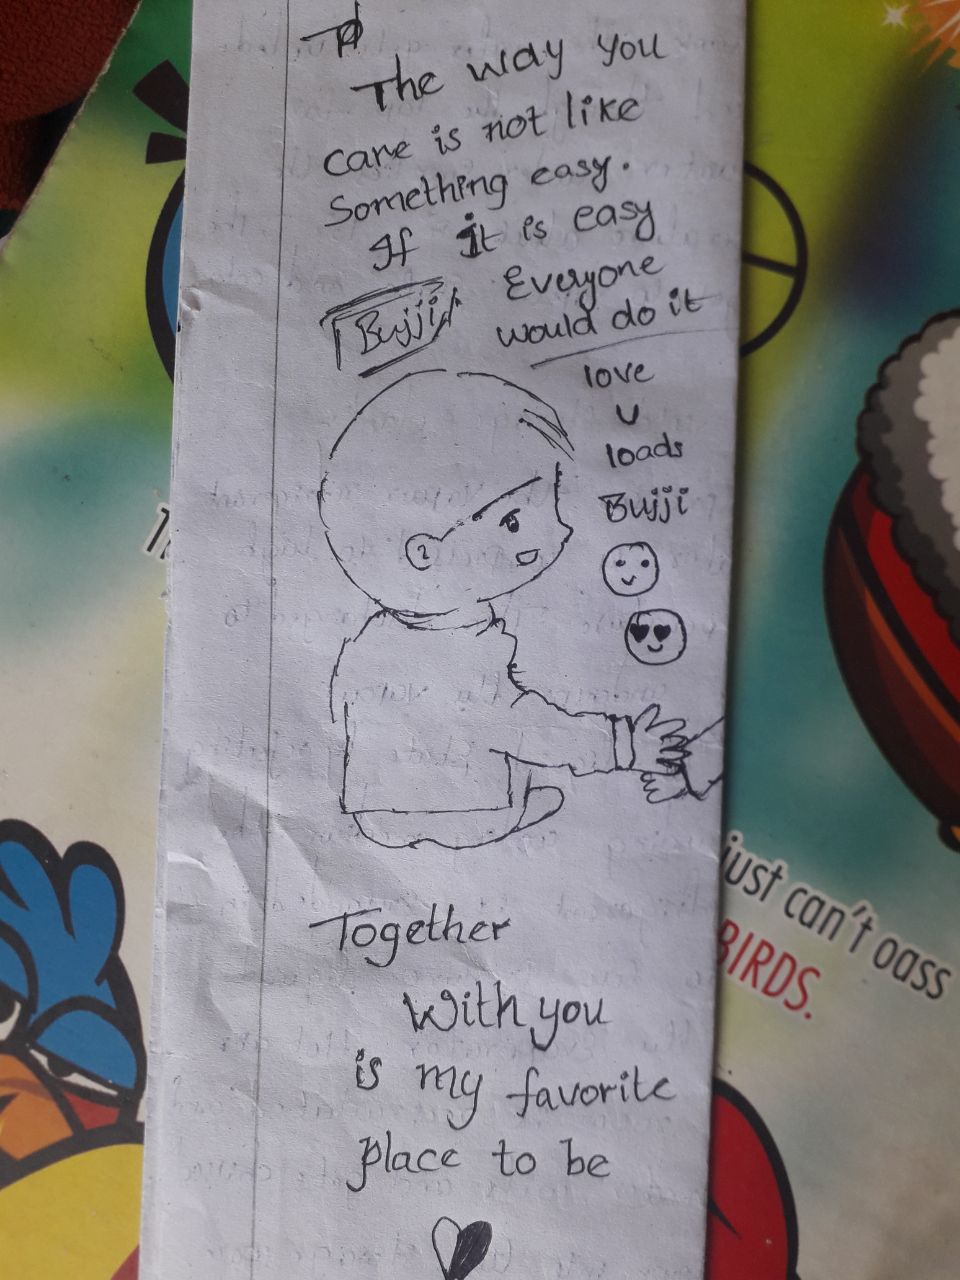 The way you
care is not like
Something easy.
If it is easy
Everyone
would do it
Bujji
love
u
loads
Bujji
Together
with you
is my favorite
place to be
just can't oass
BIRDS.